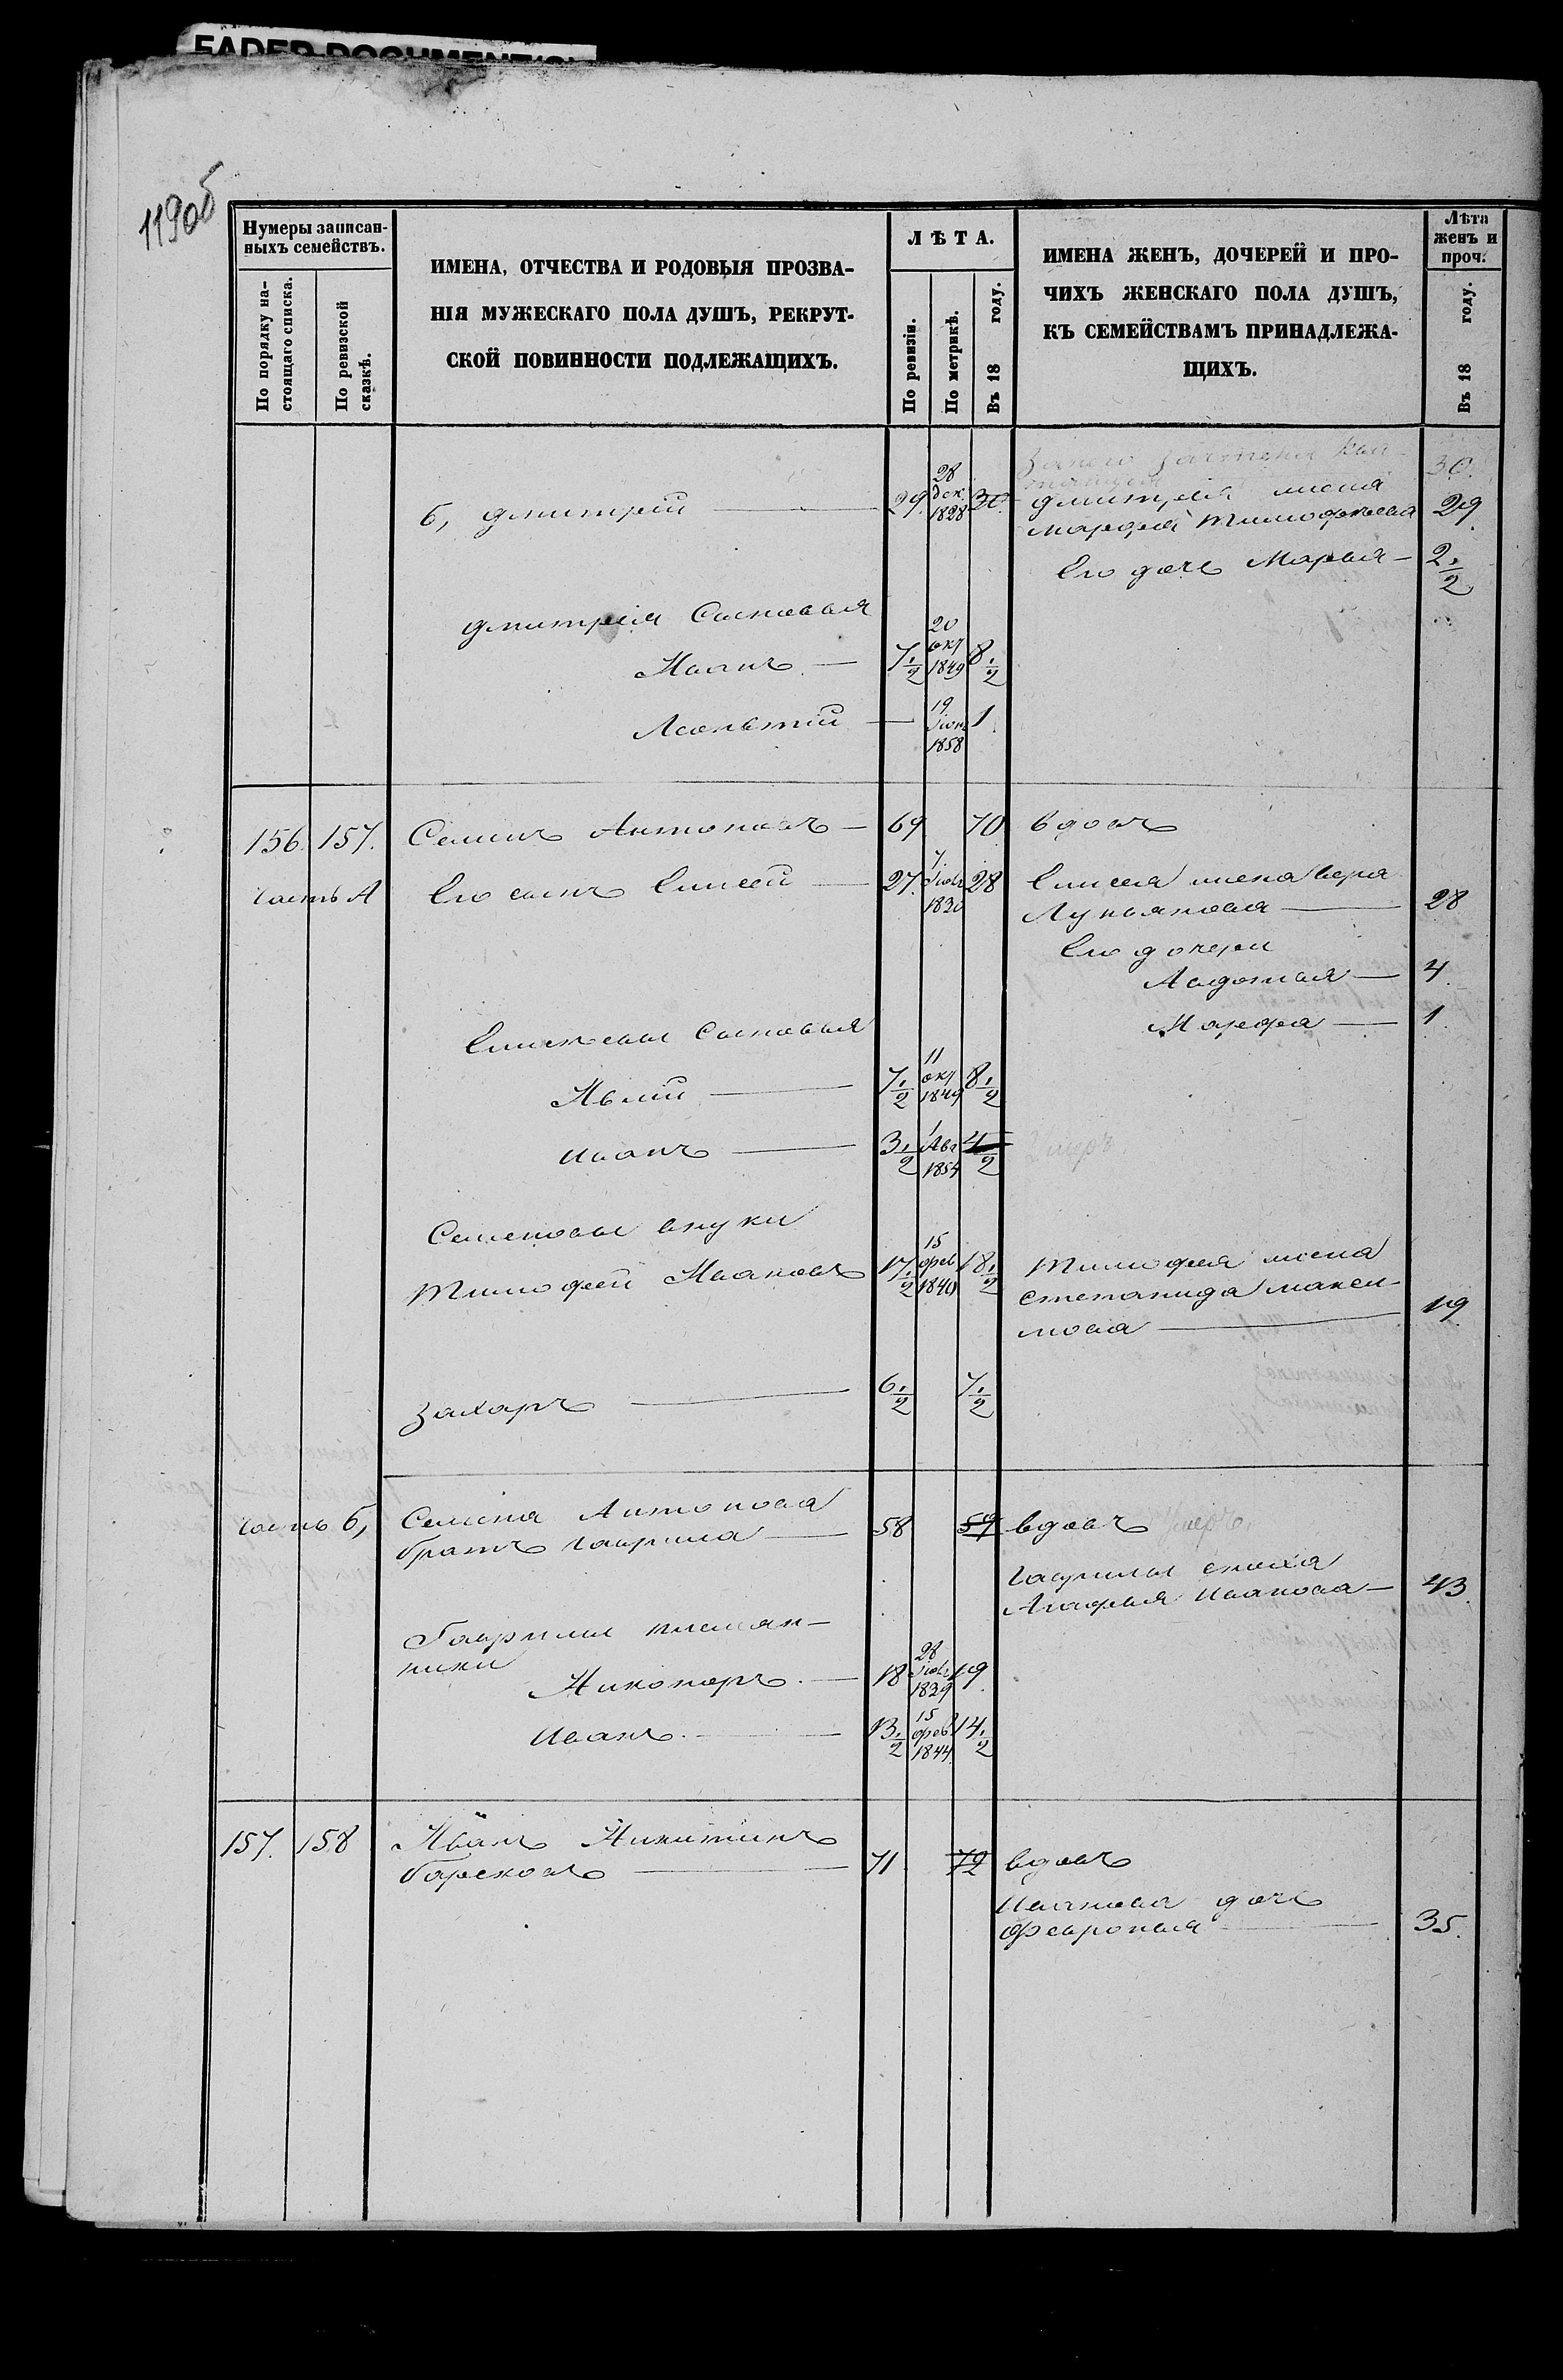 FADED DOCUMENT(S)
119об
Нумеры записан-
ныхъ семействъ.
По порядку на-
стоящаго списка.
По ревизской
сказкѣ.
ИМЕНА, ОТЧЕСТВА И РОДОВЫЯ ПРОЗВА-
НІЯ МУЖЕСКАГО ПОЛА ДУШЪ, РЕКРУТ-
СКОЙ ПОВИННОСТИ ПОДЛЕЖАЩИХЪ.
ЛѢТА.
По ревизіи.
По метрикѣ.
Въ 18 году.
ИМЕНА ЖЕНЪ, ДОЧЕРЕЙ И ПРО-
ЧИХЪ ЖЕНСКАГО ПОЛА ДУШЪ,
КЪ СЕМЕЙСТВАМЪ ПРИНАДЛЕЖА-
ЩИХЪ.
Лѣта
женъ и
проч.
Въ 18 году.
30.
б, Дмитрей 29. 28 дек. 1828 30. Дмитрея жена
Марфа Тимофеева 29
Его дочь Марья 2 1/2
Дмитрея Сыновья
Иванъ 7 1/2 20 окт 1849 8 1/2
19 Іюн 1858 1
156. 157. Семенъ Антоновъ 69 70 вдовъ
часть А Его сынъ Елисей 27. 7 Іюль 1830 28 Елисея жена вера
Лукьянова 28
Его дочери
Авдотья 4
Марфа 1
Елисеевы Сыновья
7 1/2 11 окт 1849 8 1/2
Иванъ 3 1/2 1 Авг 1854 4 1/2 Умеръ
Семеновы внуки
Тимофей Ивановъ 17 1/2 15 фев 1840 18 1/2 Тимофея жена
Степанида макси-
мова 19.
Захаръ 6 1/2 7 1/2
часть б, Семена Антонова
братъ гаврила 58 59 вдовъ Умеръ.
гаврилы сноха
Агафья Иванова 43.
Гаврилы племян-
ники
Никоноръ 18 28 Іюль 1839 19
Иванъ 13 1/2 15 фев 1844 14 1/2
157. 158 Иванъ Никитинъ
Барсковъ 71 72 вдовъ
Иванова дочь
Февронья 35.